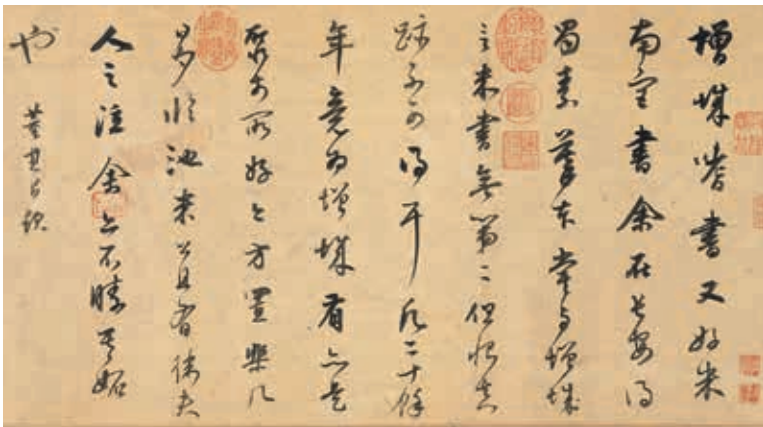 增城嗜書又好米
南宮書余在長安得
蜀素摹本嘗与增城
言米書無第二但恨真
跡不可得耳凡二十餘
年竟為增城有亦是
聚於所好今方置棐几
日夕臨池米公且有衛夫
人之泣余亦不勝其妬
也
董其昌題